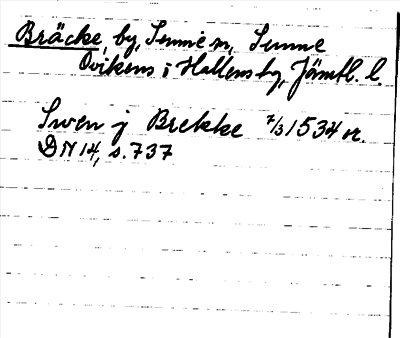 Bräcke, by, Sunne sn, Sunne
Ovikens i Hallens tg, Jämtl. l.
Swen j Brekke 7/3 1534 or.
DN 14, s. 737